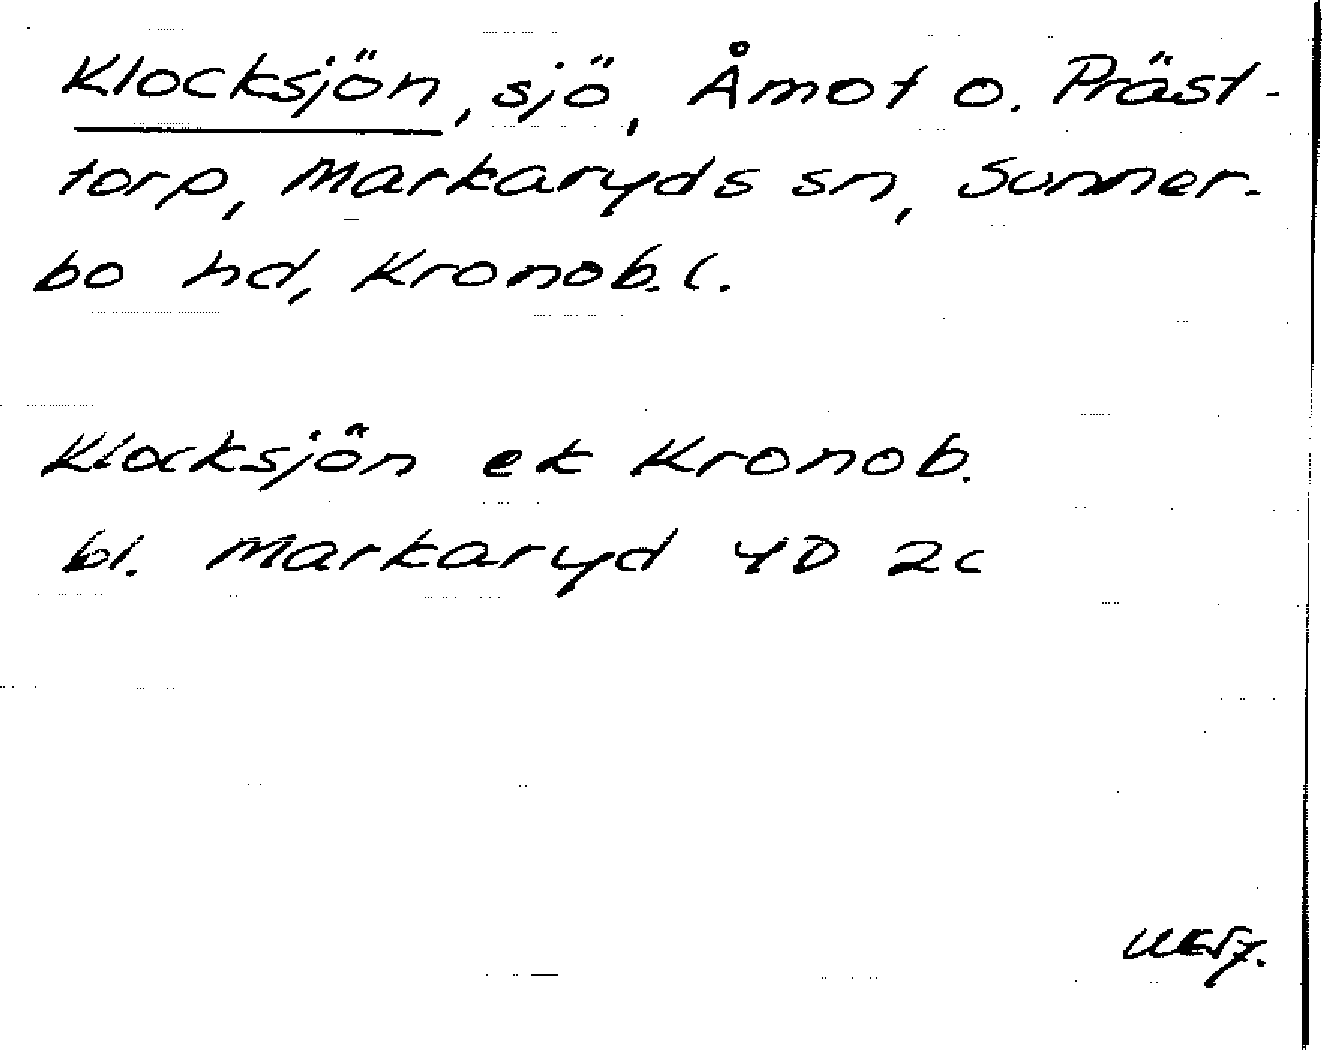 Klocksjön, sjö, Åmot o. Präst-
torp, Markaryds sn, Sunner-
bo hd, Kronob. l.
Klocksjön ek Kronob.
bl. Markaryd 4D 2c